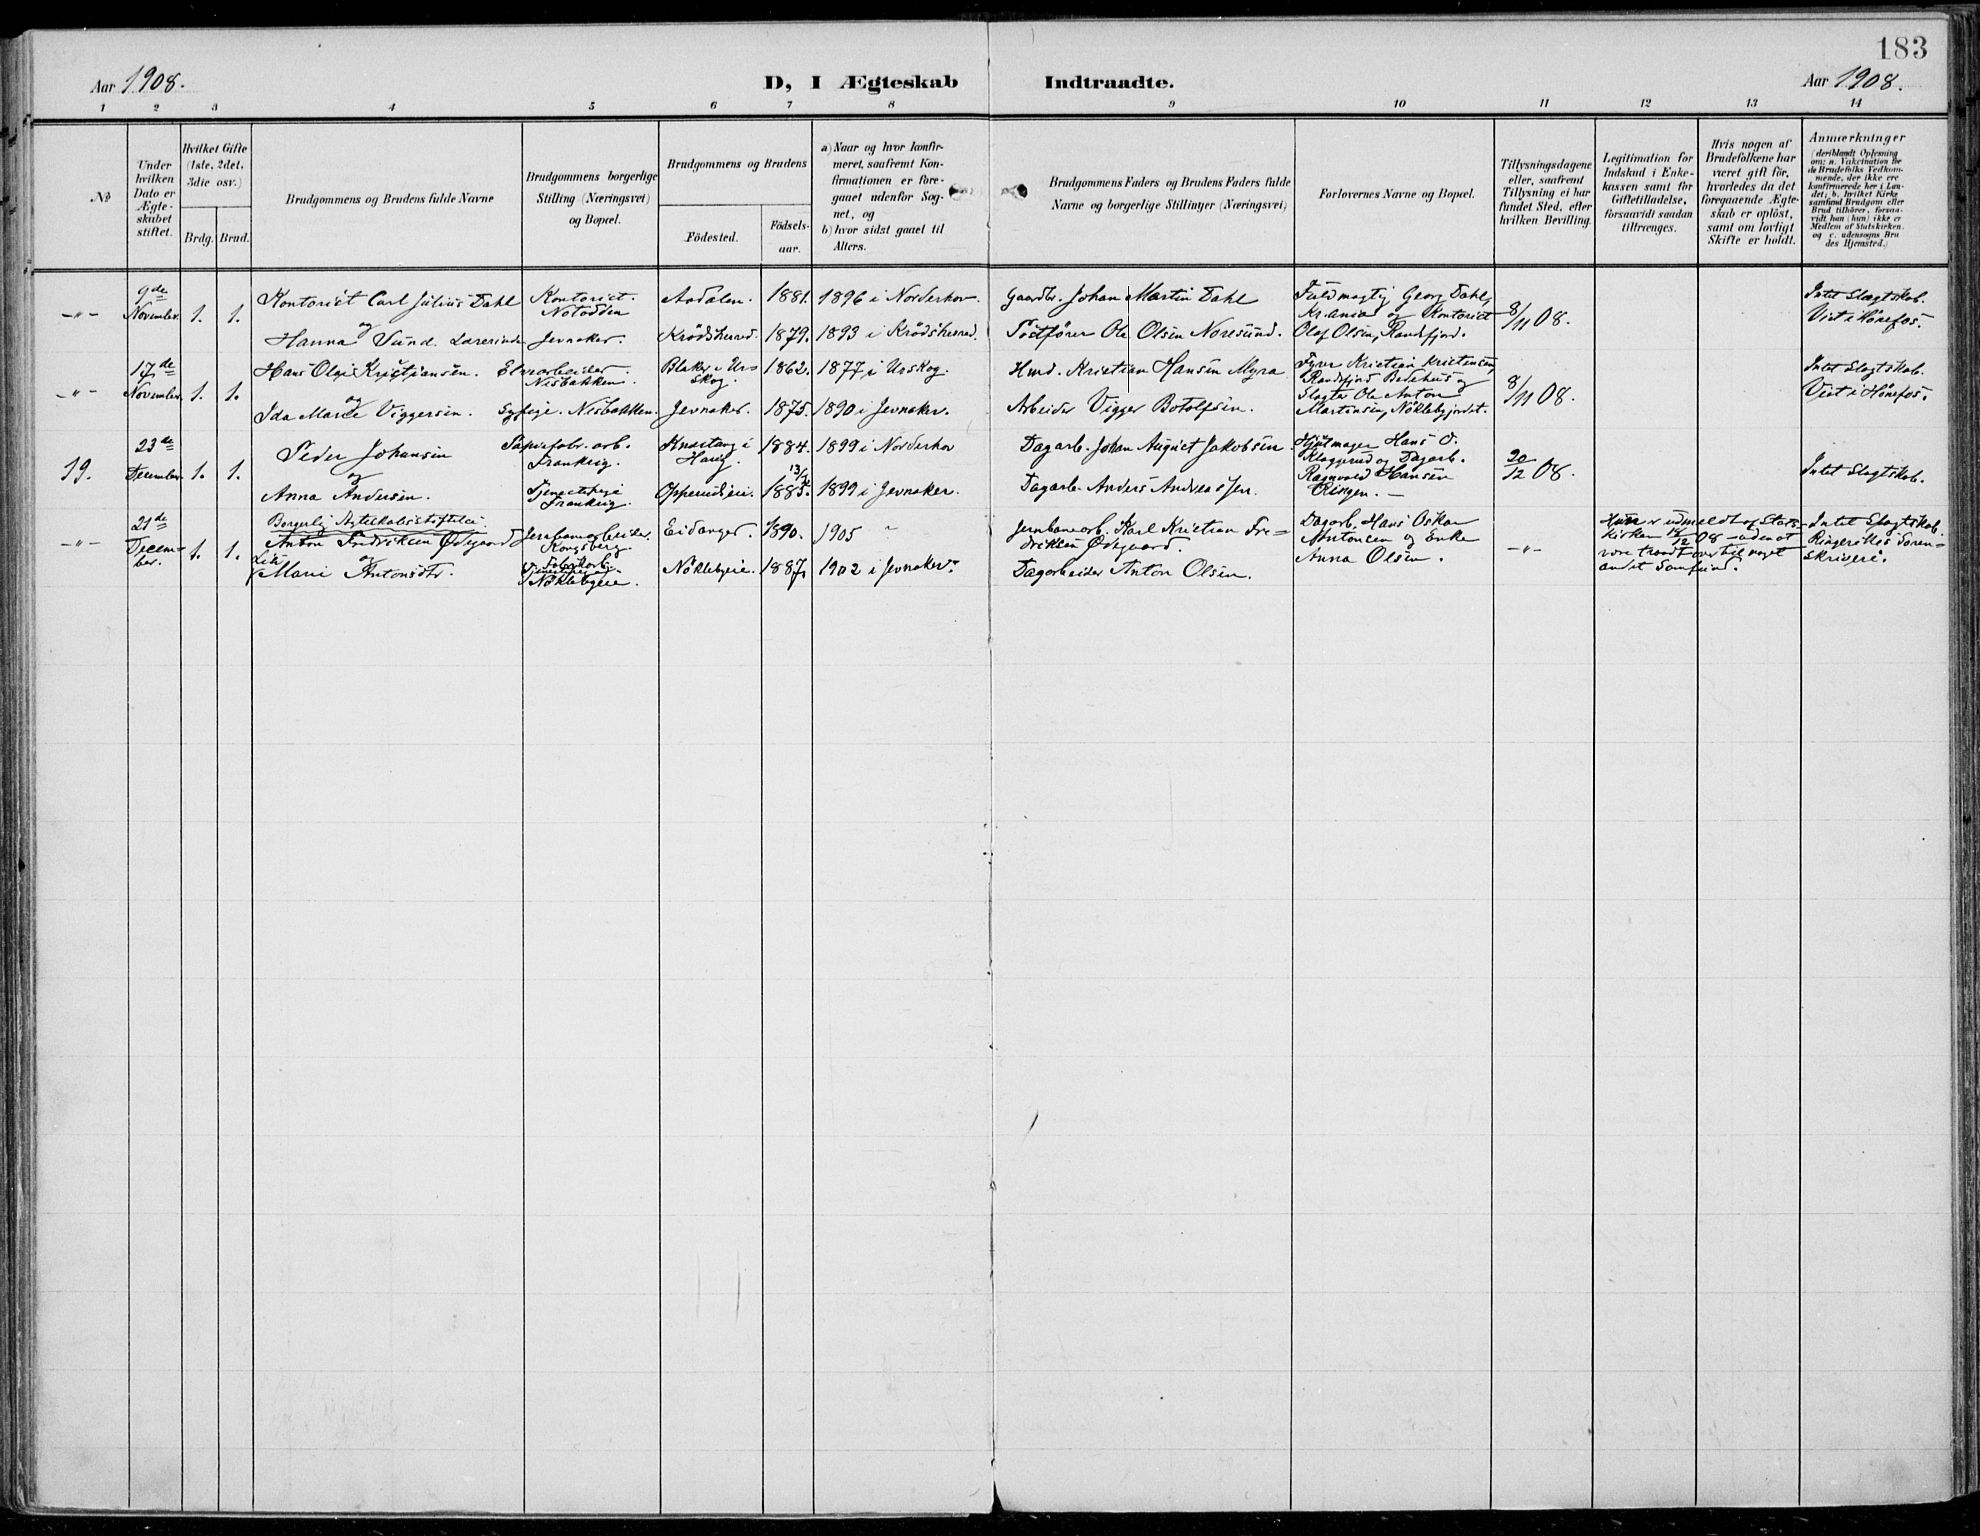 183
Aar 1908.
D, I Ægteskab Indtraadte.
Aar 1908.
1 2 3 4 5 6 7 8 9 10 11 12 13 14
No
Under hvilken Dato er Ægteskabet stiftet.
Hvilket Gifte (1ste, 2det, 3die osv.)
Brdg. Brud.
Brudgommens og Brudens fulde Navne
Brudgommens borgerlige Stilling (Næringsvei) og Bopæl.
Brudgommens og Brudens
Födested.
Födsels-aar.
a) Naar og hvor konfir-
meret, saafremt Kon-
firmationen er fore-
gaaet udenfor Sog-
net, og
b) hvor sidst gaaet til
Alters.
Brudgommens Faders og Brudens Faders fulde
Navne og borgerlige Stillinger (Næringsvei)
Forlovernes Navne og Bopæl.
Tillysningsdagene
eller, saafremt
Tillysning ei har
fundet Sted, efter
hvilken Bevilling.
Legitimation for
Indskud i Enke-
kassen samt for
Giftetilladelse,
forsaavidt saadan
tiltrænges.
Hvis nogen af
Brudefolkene har
været gift för,
hvorledes da det
foregaaende Ægte-
skab er oplöst,
samt om lovligt
Skifte er holdt.
Anmærkninger
(deriblandt Oplysning
om: a. Vakcination for
de Brudefolks Vedkom-
mende, der ikke ere
konfirmerede her i Lan-
det; b. hvilket Kirke
samfund Brudgom eller
Brud tilhörer, forsaa-
vidt han (hun) ikke er
Medlem af Statskirken.
og c. udensogns Bru
des Hjemsted.)
-"- 9de November. 1. 1.
Kontorist Carl Julius Dahl
og
Hanna Sund. Lærerinde
Kontorist. Notodden
Jevnaker.
Aadalen. 1881. 1896 i Norderhov.
Krödsherred. 1879. 1893 i Krödsherred.
Gaardbr. Johan Martin Dahl
Ole Olsen Noresund.
Fuldmægtig Georg Dahl,
Kr.ania og Kontorist
Olaf Olsen, Randsfjord.
8/11 08.
Intet Slægtskab.
Viet i Hönefos.
-"- 17de November. 1. 1.
Hans Olai Kristiansen.
og
Ida Marie Viggersen.
Elvearbeider. Nisbakken.
Sypige. Nisbakken.
Blaker i Urskog. 1862. 1877 i Urskog.
Jevnaker. 1875. 1890 i Jevnaker.
Hmd. Kristian Hansen Myra
Arbeider Vigger Botolfsen.
Fyrer Kristian Kristensen,
Randsfjord Bedehus og
Slagter Ole Anton
Martinsen, Nöklebyjordet.
8/11 08.
Intet Slægtskab.
Viet i Hönefos.
19. 23de December. 1. 1.
Peder Johansen
og
Anna Andersen.
Papirfabr. arb. Frankrig.
Tjenestepige Frankrig.
Haug. 1884. 1899 i Norderhov
Opperudeie. 1883. 1899 i Jevnaker.
Dagarb. Johan August Jakobsen.
Dagarb. Anders Andreassen.
Hjulmager Hans O.
Klæggerud og Dagarb.
Ragnvald Hansen
Ringen. —
20/12 08.
Intet Slægtskab.
-"- 21de December. 1. 1.
Borgerlig Ægteskabsstiftelse
Anton Fredriksen Ödegaard
og
Marie Antonsdtr.
Jernbanearbeider. Kongsberg.
Fabrikarb. Nöklebyeie.
Eidanger. 1890. 1905 "
Nöklebyeie. 1887. 1902 i Jevnaker.
Jernbanearb. Karl Kristian Fre-
driksen Ödegaard.
Dagarbeider Anton Olsen.
Dagarb. Hans Oskar
Antonsen og Enke
Anna Olsen.
-"-
Hun er udmeldt af Stats-
kirken 14/12 08 - uden at
være traadt over til noget
andet Samfund.
Intet Slægtskab.
Ringerikes Soren-
skriveri.